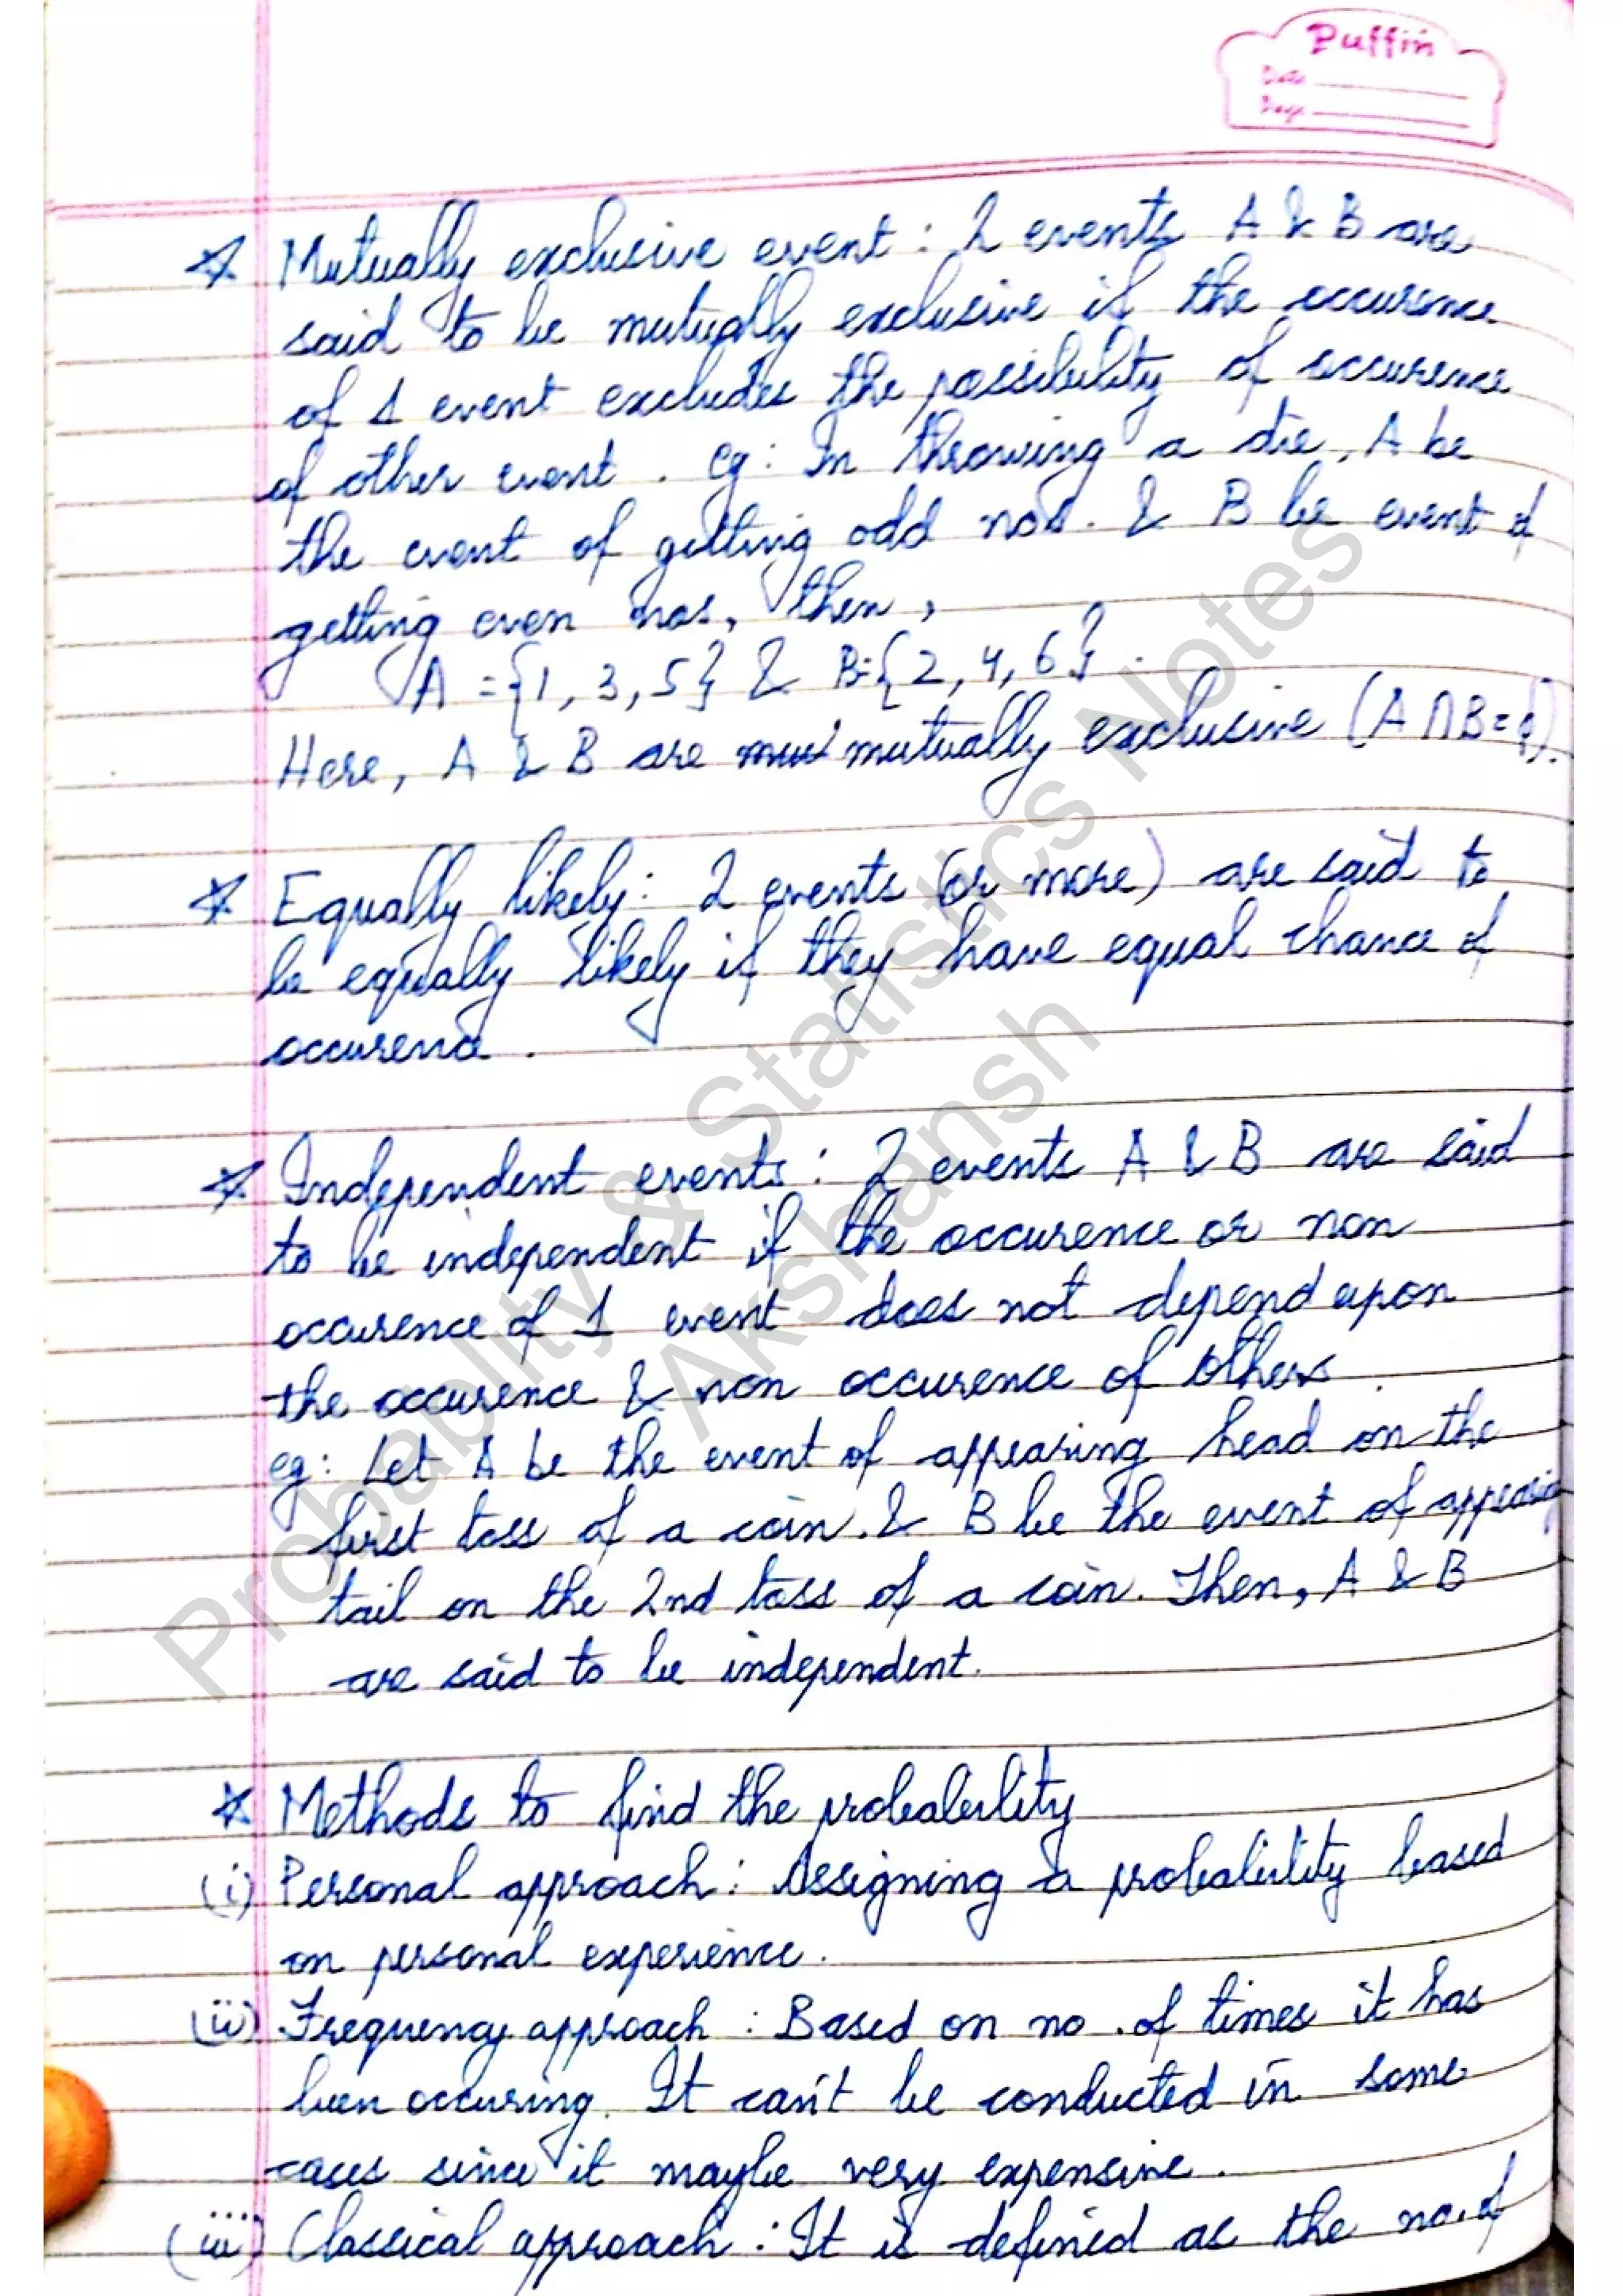 Puffin
Date
Page
☆ Mutually exclusive event : 2 events A & B are
said to be mutually exclusive if the occurence
of 1 event excludes the possibility of occurence
of other event . eg : In throwing a die, A be
the event of getting odd nos. & B be event of
getting even nos, then,
A = {1, 3, 5} & B={2, 4, 6} .
Here, A & B are mutually exclusive (A∩B=ϕ).
☆ Equally likely: 2 events (or more) are said to
be equally likely if they have equal chance of
occurence .
☆ Independent events : 2 events A & B are said
to be independent if the occurence or non
occurence of 1 event does not depend upon
the occurence & non occurence of others .
eg: Let A be the event of appearing head on the
first toss of a coin. & B be the event of appearing
tail on the 2nd toss of a coin. Then, A & B
are said to be independent.
☆ Methods to find the probability
(i) Personal approach : Assigning a probability based
on personal experience .
(ii) Frequency approach : Based on no. of times it has
been occuring. It can't be conducted in some
cases since it maybe very expensive .
(iii) Classical approach : It is defined as the no. of
Probability & Statistics Notes
Akshansh